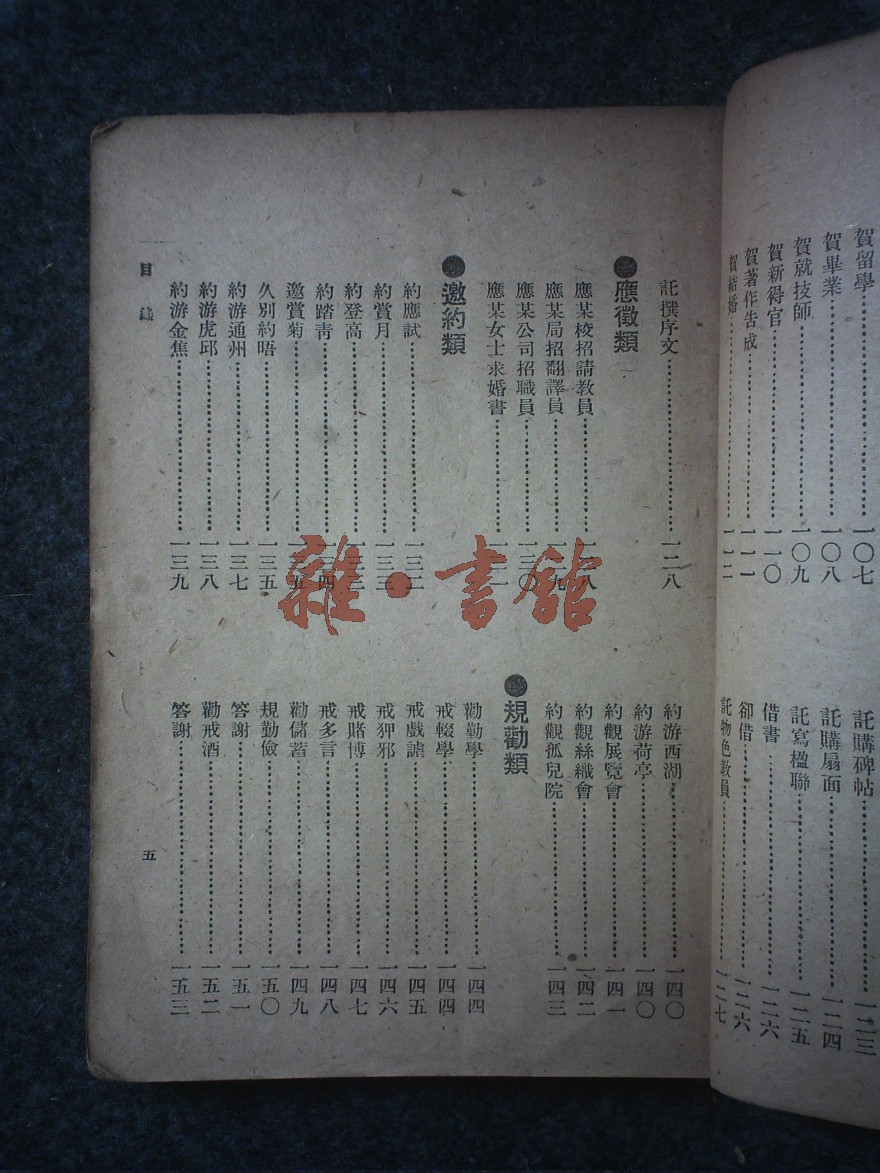 賀留學………一〇七
賀畢業………一〇八
賀就技師………一〇九
賀新得官………一一〇
賀著作告成………一一一
賀結婚………一一二
託購碑帖………一二三
託購扇面………一二四
託寫楹聯………一二五
借書………一二六
卻借………一二六
託物色教員………一二七
託撰序文………一二八
●應徵類
應某校招請教員………一二八
應某局招翻譯員………一二九
應某公司招職員………一三〇
應某女士求婚書………一三一
●邀約類
約應試………一三二
約賞月………一三三
約登高………一三三
約踏青………一三四
邀賞菊………一三五
久別約晤………一三五
約游通州………一三七
約游虎邱………一三八
約游金焦………一三九
約游西湖………一四〇
約游荷亭………一四〇
約觀展覽會………一四一
約觀絲織會………一四二
約觀孤兒院………一四三
●規勸類
勸勤學………一四四
戒輟學………一四四
戒戲謔………一四五
戒狎邪………一四六
戒賭博………一四七
戒多言………一四八
勸儲蓄………一四九
規勤儉………一五〇
答謝………一五一
勸戒酒………一五二
答謝………一五三
目錄
五
雜·書館